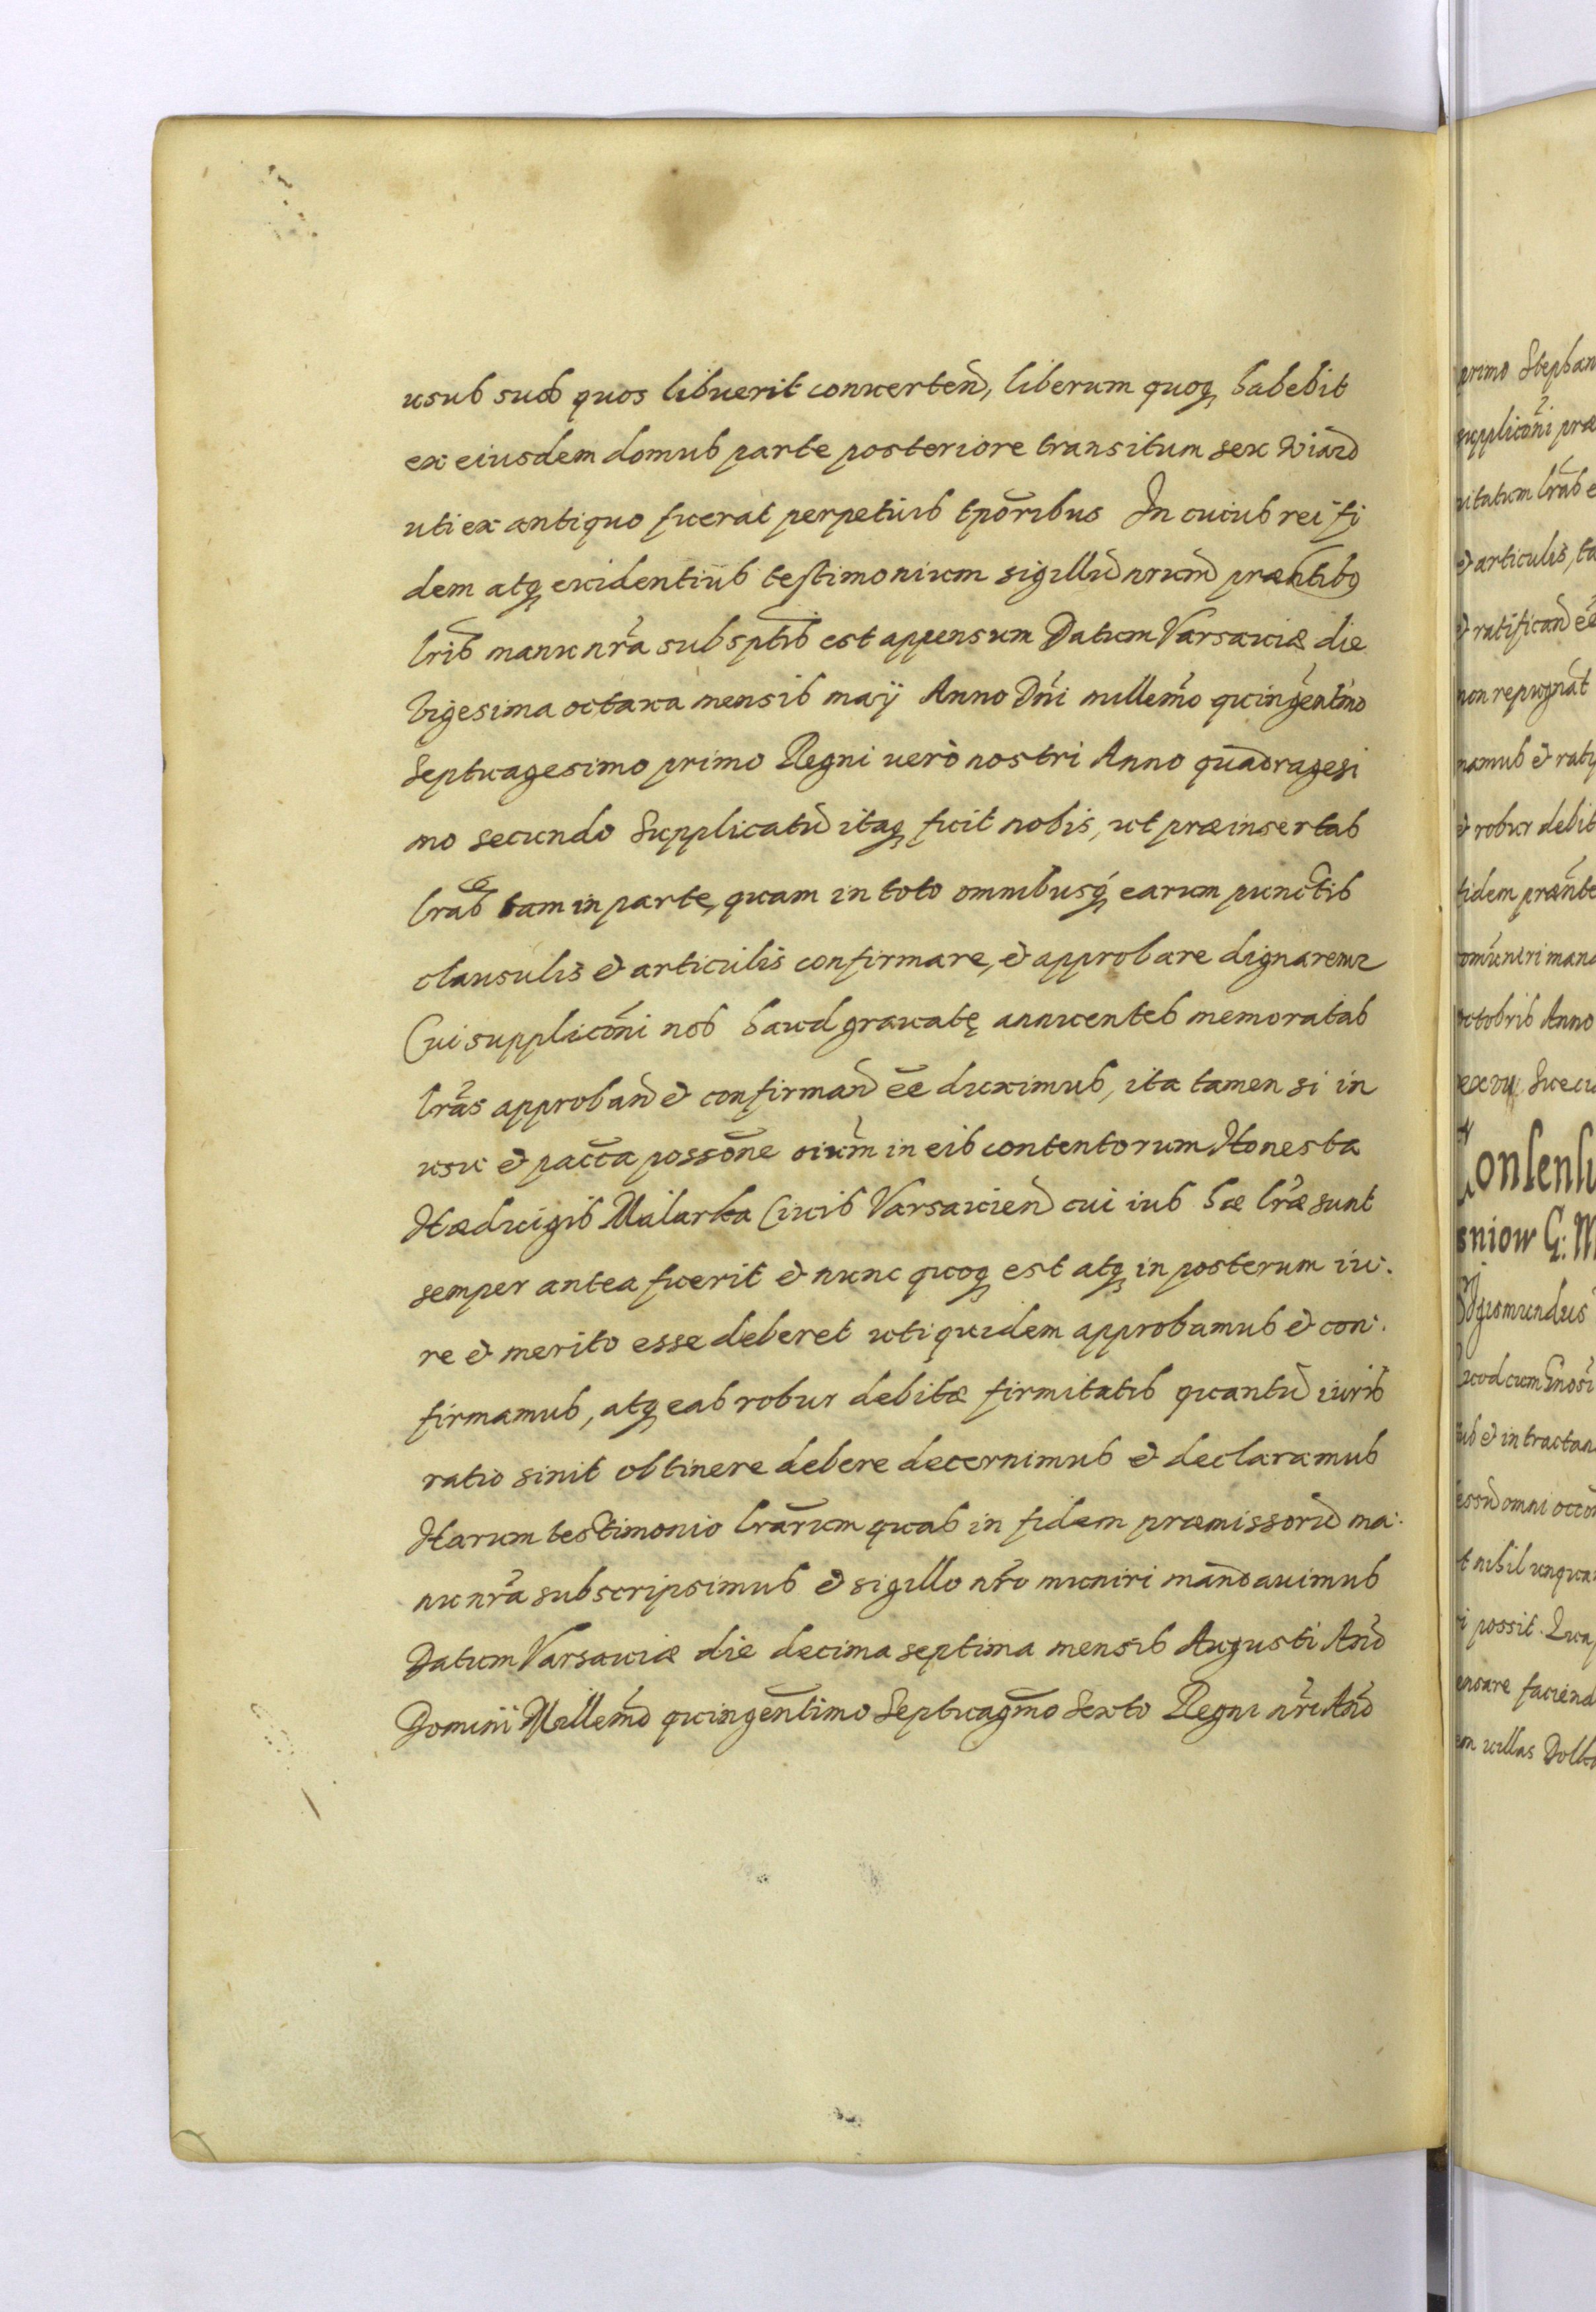 usus suos quos libuerit conuerten̄, liberum quoq́ habebit
ex eiusdem domus parte posteriore transitum seu
uti ex antiquo fuerat perpetuis tp̄oribus In cuius rei fi
dem atq́ euidentius testimonium sigillū nrum̄ præn̄tibq
lrīs manu nr̄a subsptīs est appensum Datum Varsauiæ die
vigesima octaua mensis maÿ Anno Dn̄i millem̄o quingentm̄o
Septuagesimo primo Regni uerò nostri Anno quadragesi
mo secundo Supplicatū itaq́ fuit nobis, ut præinsertas
lrās tam in parte, quam in toto omnibusq́ earum punctis
clausulis & articulis confirmare, & approbare dignaremur
Cui supplicōni nos haud grauatę annuentes memoratas
lrās approban̄ & confirman̄ ēē duximus, ita tamen si in
usu & pacc̄a possōne oium̄ in eis contentorum Honesta
Hæduigis Malarka Ciuis Varsauien̄ cui ius hæ lr̄æ sunt
semper antea fuerit & nunc quoq́ est atq́ in posterum iu-
re & merito esse deberet uti quidem approbamus & con-
firmamus, atq́ eas robur debitæ firmitatis quantū iuris
ratio sinit obtinere debere decernimus & declaramus
Harum testimonio lrārum quas in fidem præmissorū ma-
nu nr̄a subscripsimus & sigillo nr̄o muniri mandauimus
Datum Varsauiæ die decima septima mensis Augusti Ann̄o
Domini Millem̄o quingen̄timo Septuagm̄o Sexto Regni nr̄i Ann̄o
primo Stephan
supplicōni præ
uitatum lrās e
& articulis, ta
& ratifican̄ ēē
non repugnāt
mamus & raty
& robur debit
fidem præn̄te
om̄uniri mand
octobris Anno
Consensu
sniow G: M
Sigismundus
Quod cum Gnosi
us & in tractan
t nihil unquam
i possit. Qua
ensare faciend
um uillas Dolho